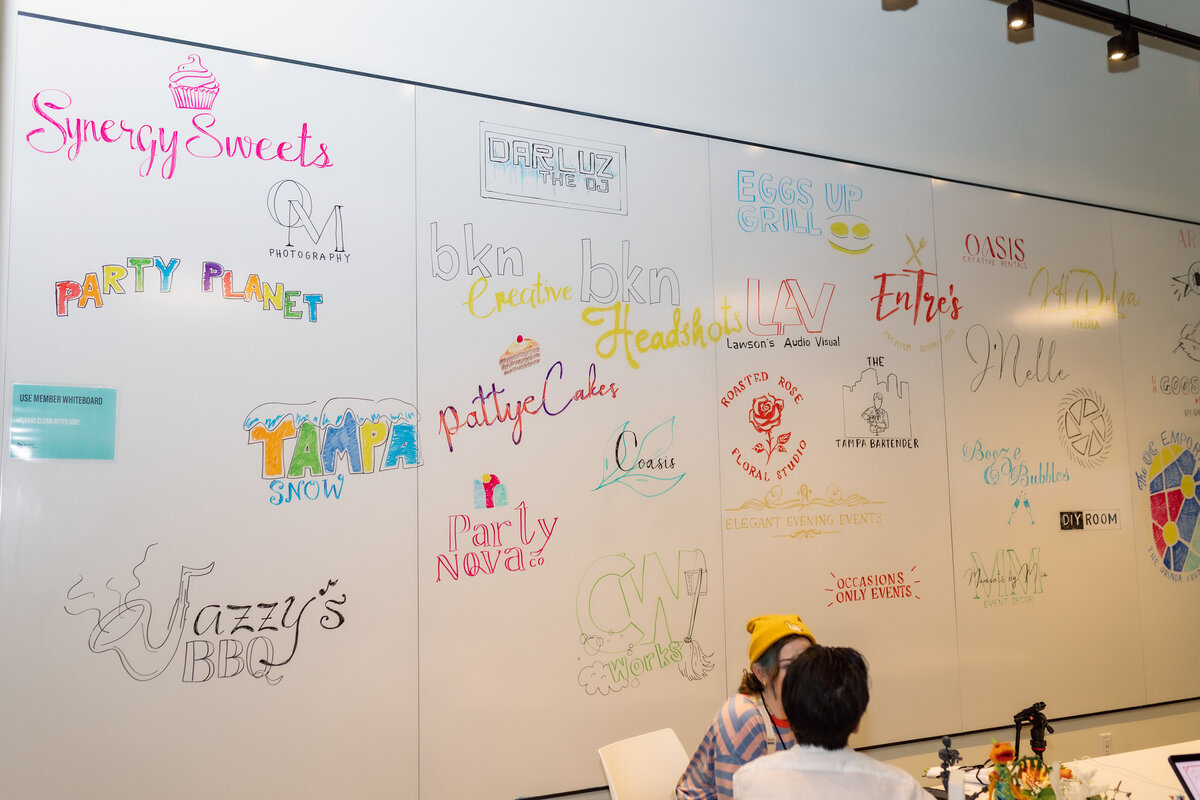 Synergy Sweets
OM
PHOTOGRAPHY
PARTY PLANET
USE MEMBER WHITEBOARD
PLEASE CLEAN AFTER USE!
TAMPA
SNOW
Jazzy's
BBQ
DARLUZ
THE DJ
bkn
Creative
bkn
Headshots
PattyeCakes
Coasis
Party
Nova
co
CW
Works
EGGS UP
GRILL
LAV
Lawson's Audio Visual
EnTre's
PREMIUM GOURMET FOOD
ROASTED ROSE
FLORAL STUDIO
THE
TAMPA BARTENDER
ELEGANT EVENING EVENTS
OCCASIONS
ONLY EVENTS
OASIS
CREATIVE RENTALS
Jeff Delsa
MEDIA
J'Nelle
Booze
& Bubbles
DIY ROOM
MM
Moments by Mia
EVENT DECOR
AR
GOOS
The OG EMPOR